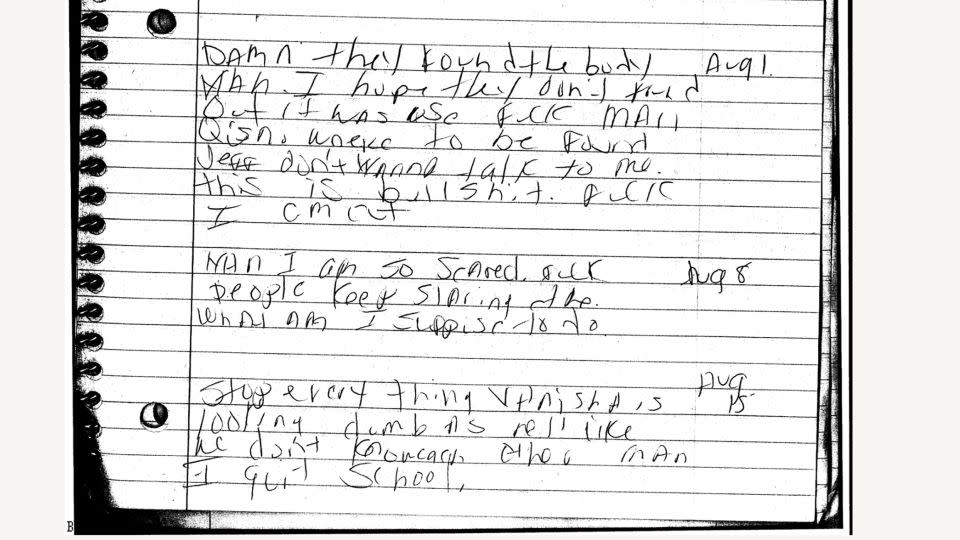 DAMN they found the body Aug 1.
MAN I hope they don't find
Out it was use fuck MAN
wneve to be Found
Jeff don't wanna talk to me.
this is bullshit. fuck
I cm out
MAN I am so scared. fuck Aug 8
people keep Staring at me.
What am I suppise to do.
Stop every thing is Aug 15
looking dumb As hell like
we don't MAN
I quit School.
B